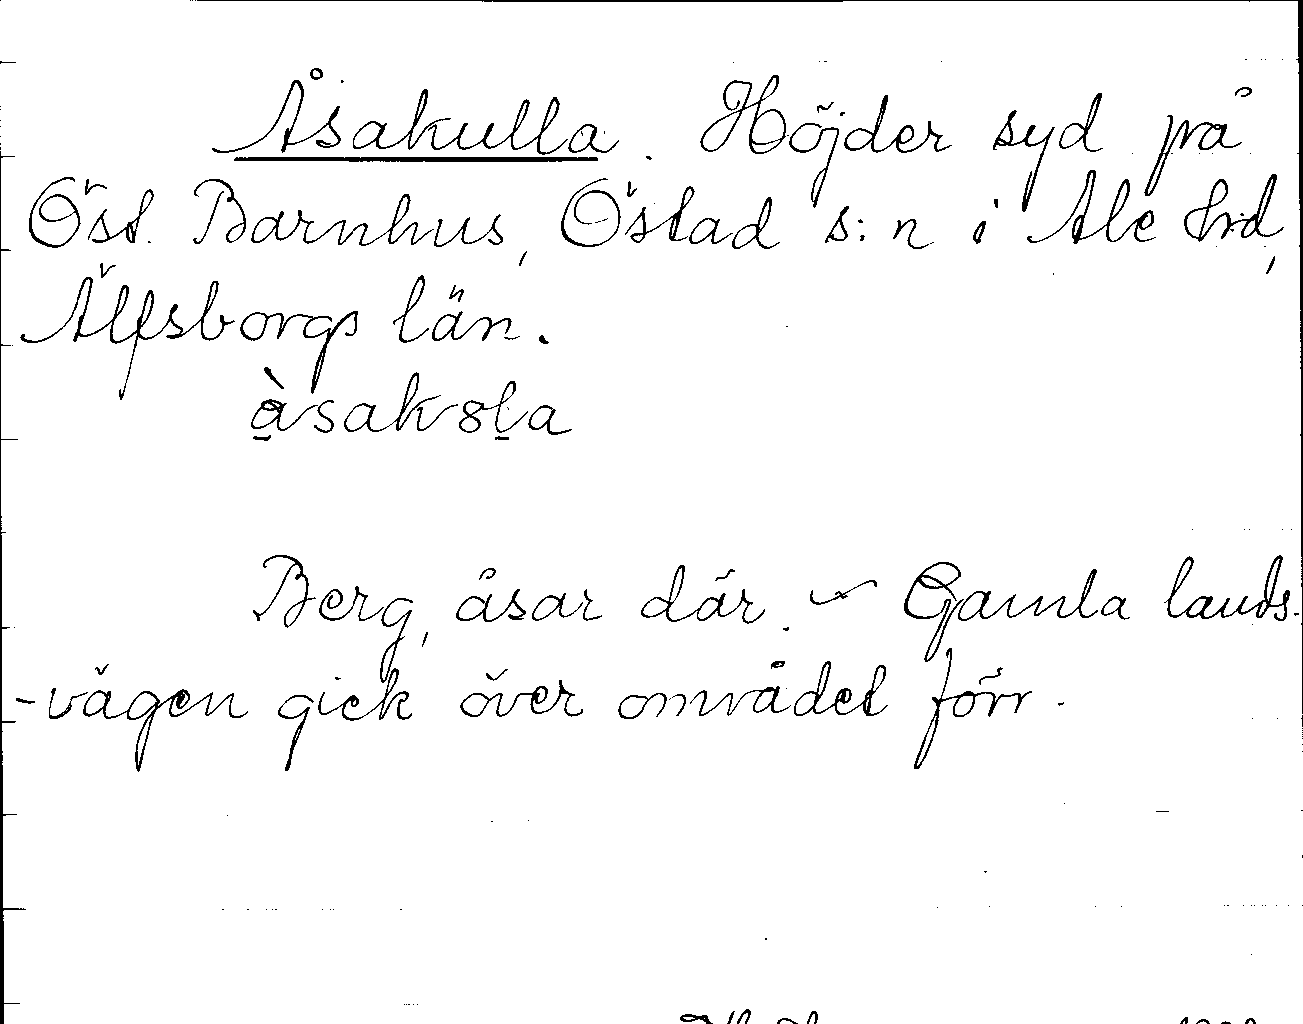 Åsakulla. Höjder syd på
Öst. Barnhus, Östad s:n i Ale hrd,
Älfsborgs län.
åsak8la
Berg, åsar där. – Gamla lands-
-vägen gick över området förr.